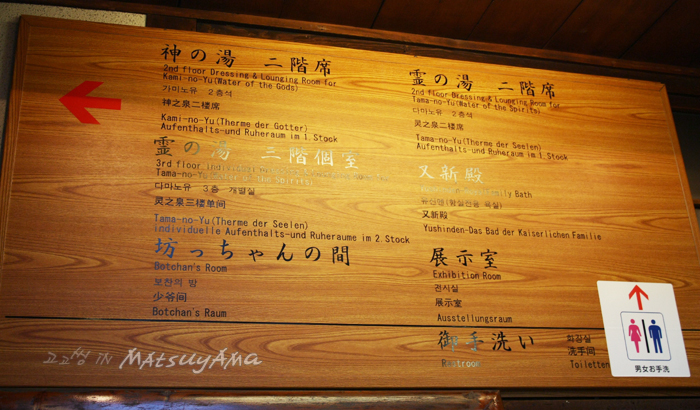 神の湯 二階席
2nd floor Dressing & Lounging Room for
Kami-no-Yu(Water of the Gods)
가미노유 2층석
神之泉二楼席
Kami-no-Yu(Therme der Gotter)
Aufenthalts-und Ruheraum im 1.Stock
霊の湯 三階個室
3rd floor Individual
Tama-no-Yu(Water of the Spirits)
다마노유 3층 개별실
灵之泉三楼单间
Tama-no-Yu(Therme der Seelen)
Individuelle Aufenthalts-und Ruheraume im 2.Stock
坊っちゃんの間
Botchan's Room
보찬의 방
少爷间
Botchan's Raum
霊の湯 二階席
2nd floor Dressing & Lounging Room for
Tama-no-Yu(Water of the Spirits)
다마노유 2층석
灵之泉二楼席
Tama-no-Yu(Therme der Seelen)
Aufenthalts-und Ruheraum im 1.Stock
又新殿
Family Bath
유신덴(황실전용 욕실)
又新殿
Yushinden-Das Bad der Kaiserlichen Familie
展示室
Exhibition Room
전시실
展示室
Ausstellungsraum
御手洗い
Restroom
화장실
洗手间
Toiletten
男女お手洗
고고씽 IN MAtsuyAmA